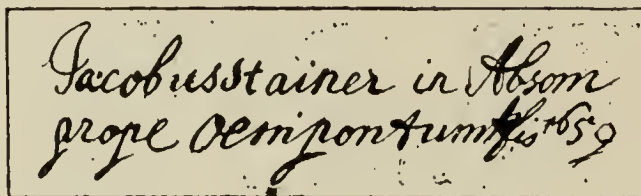 Jacobus Stainer in Absom
prope oenipontum 1659